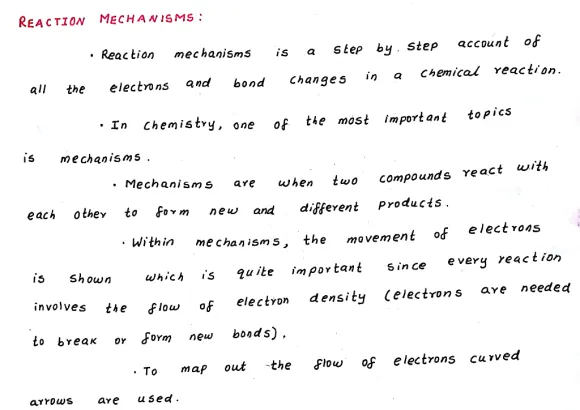 REACTION MECHANISMS:
· Reaction mechanisms is a step by step account of
all the electrons and bond changes in a chemical reaction.
· In chemistry, one of the most important topics
is mechanisms.
· Mechanisms are when two compounds react with
each other to form new and different products.
· Within mechanisms, the movement of electrons
is shown which is quite important since every reaction
involves the flow of electron density (electrons are needed
to break or form new bonds).
· To map out the flow of electrons curved
arrows are used.